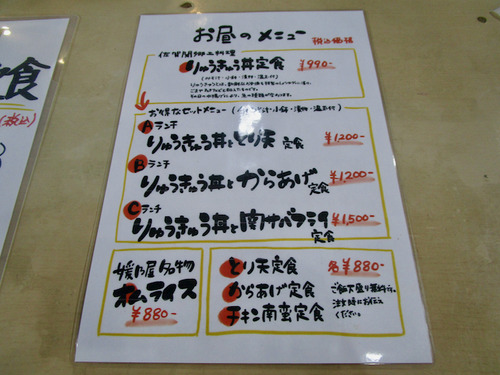 お昼のメニュー 税込価格
佐賀関郷土料理
りゅうきゅう丼定食 ¥990-
お得なセットメニュー
Aランチ
りゅうきゅう丼ととり天定食 ¥1200-
Bランチ
りゅうきゅう丼とからあげ定食 ¥1,200-
Cランチ
りゅうきゅう丼と関サバフライ定食 ¥1,500-
媛乃屋名物
オムライス
¥880-
とり天定食 各¥880-
からあげ定食
チキン南蛮定食
ご飯大盛り無料です。
注文時にお伝え
ください。
定食
(税込)